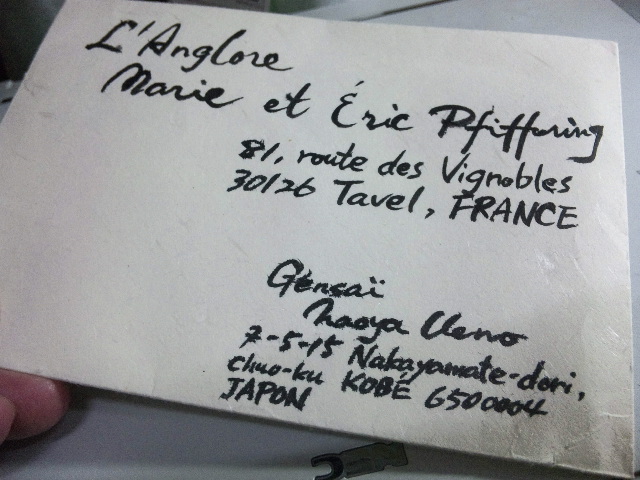 L'Anglore
Marie et Éric Pfifferling
81, route des Vignobles
30126 Tavel, FRANCE
Gensaï
Naoya Ueno
7-5-15 Nakayamate-dori,
Chuo-ku KOBÉ 6500004
JAPON